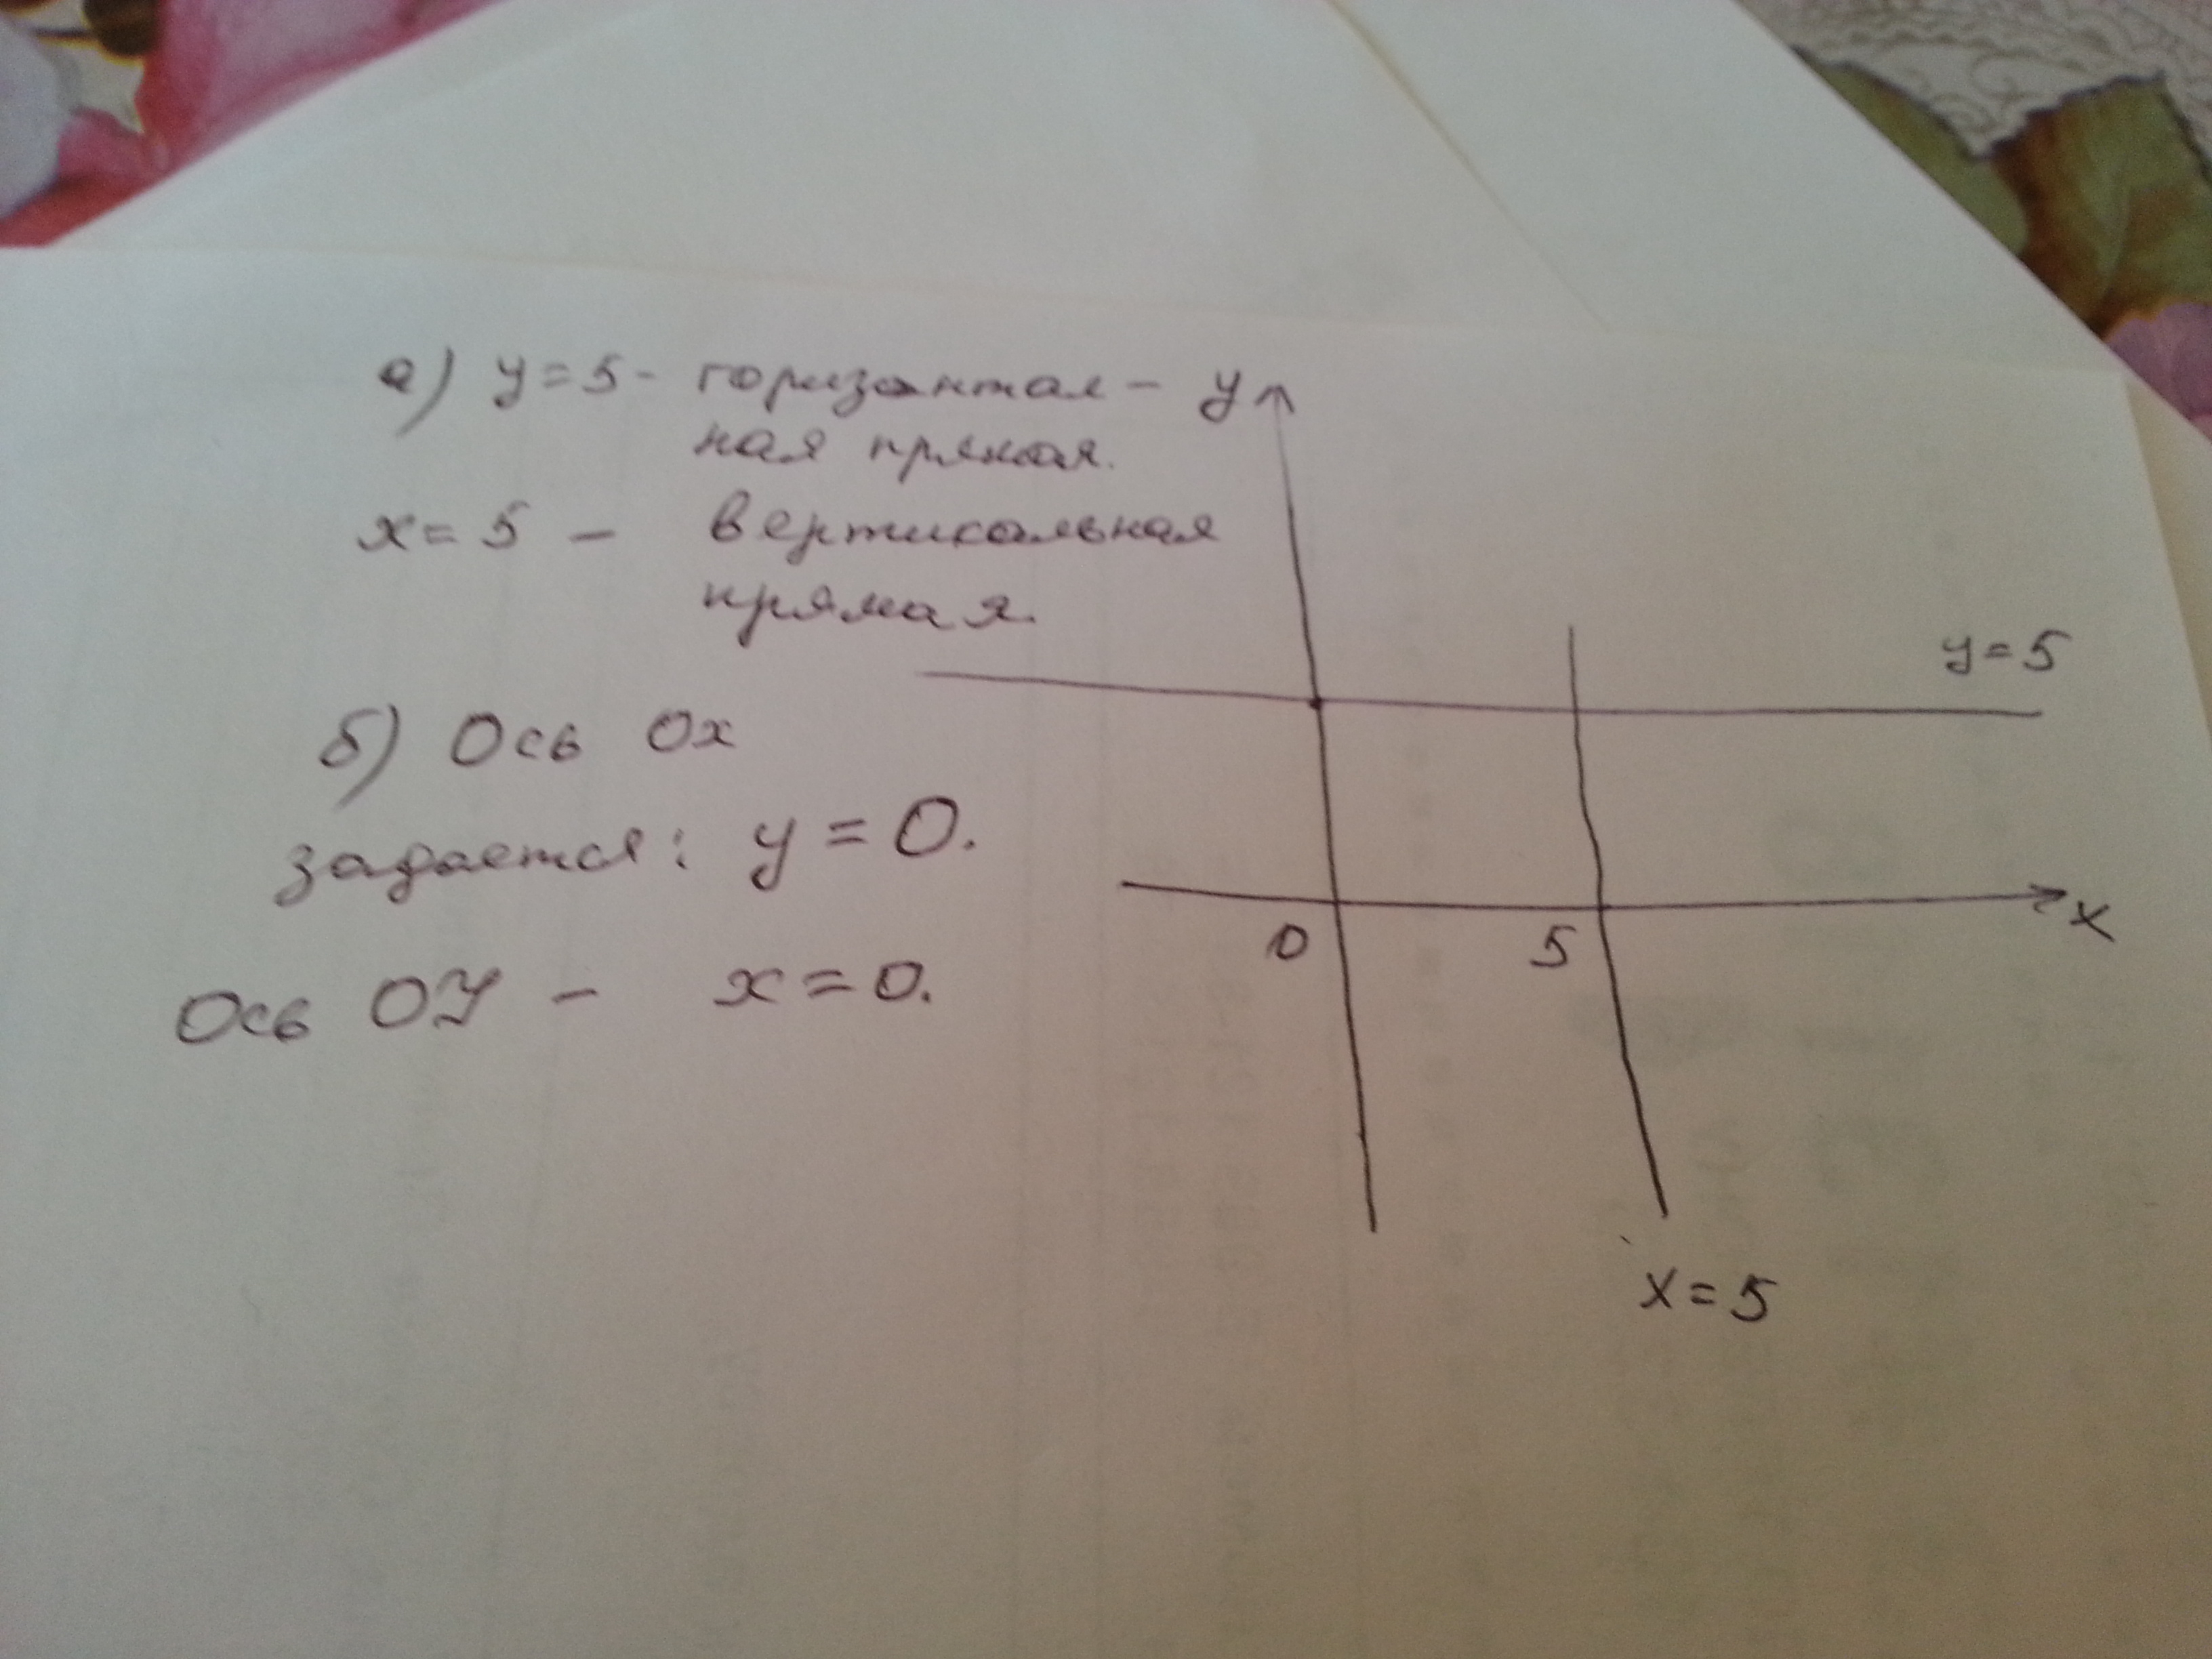 а) y=5- горизонтал-
ная прямая.
x=5 - вертикальная
прямая.
б) Ось Ox
задается: y=0.
Ось OY - x=0.
y
y=5
0
5
x
x=5